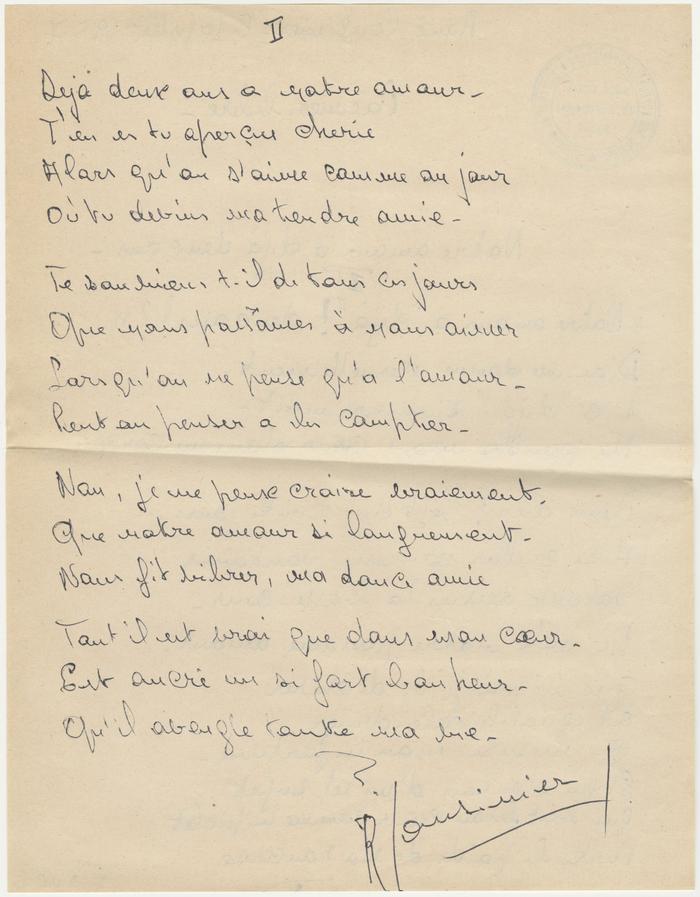 II
Déjà deux ans a notre amour_
T'en es tu aperçue cherie
Alors qu'on s'aime comme au jour
Où tu devins ma tendre amie_
Te souviens t-il de tous ces jours
Que nous passâmes à nous aimer
Lorsqu'on ne pense qu'à l'amour_
Peut on penser a les compter_
Non, je ne peux croire vraiement.
Que notre amour si longuement_
Nous fit vibrer, ma douce amie
Tant'il est vrai que dans mon cœur_
Est ancré un si fort bonheur_
Qu'il aveugle toute ma vie_